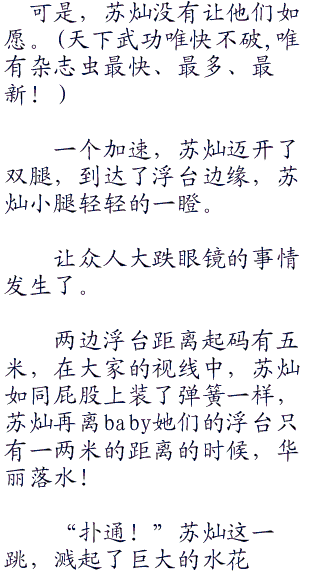 可是，苏灿没有让他们如
愿。(天下武功唯快不破,唯
有杂志虫最快、最多、最
新！)
一个加速，苏灿迈开了
双腿，到达了浮台边缘，苏
灿小腿轻轻的一瞪。
让众人大跌眼镜的事情
发生了。
两边浮台距离起码有五
米，在大家的视线中，苏灿
如同屁股上装了弹簧一样，
苏灿再离baby她们的浮台只
有一两米的距离的时候，华
丽落水！
“扑通！”苏灿这一
跳，溅起了巨大的水花